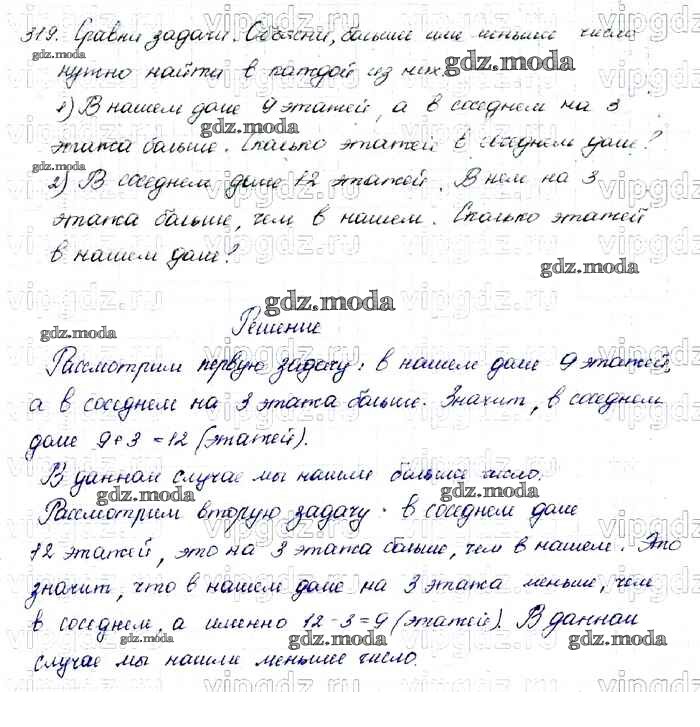 319. Сравни задачи. Объясни, больше или меньше число
нужно найти в каждой из них.
gdz.moda
1) В нашем доме 9 этажей, а в соседнем на 3
gdz.moda
этажа больше. Сколько этажей в соседнем доме?
gdz.moda
2) В соседнем доме 12 этажей. В нем на 3
этажа больше, чем в нашем. Сколько этажей
в нашем доме?
gdz.moda
gdz.moda
Решение
gdz.moda
Рассмотрим первую задачу: в нашем доме 9 этажей,
а в соседнем на 3 этажа больше. Значит, в соседнем
доме 9+3=12 (этажей).
В данном случае мы нашли большее число.
gdz.moda
gdz.moda
Рассмотрим вторую задачу: в соседнем доме
12 этажей, это на 3 этажа больше, чем в нашем. Это
значит, что в нашем доме на 3 этажа меньше, чем
в соседнем, а именно 12-3=9 (этажей). В данном
gdz.moda
gdz.moda
случае мы нашли меньшее число.
vipgdz.ru